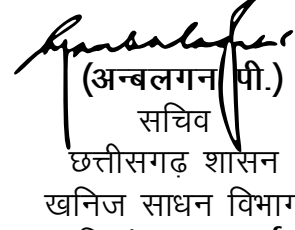 (अन्बलगन पी.)
सचिव
छत्तीसगढ़ शासन
खनिज साधन विभाग